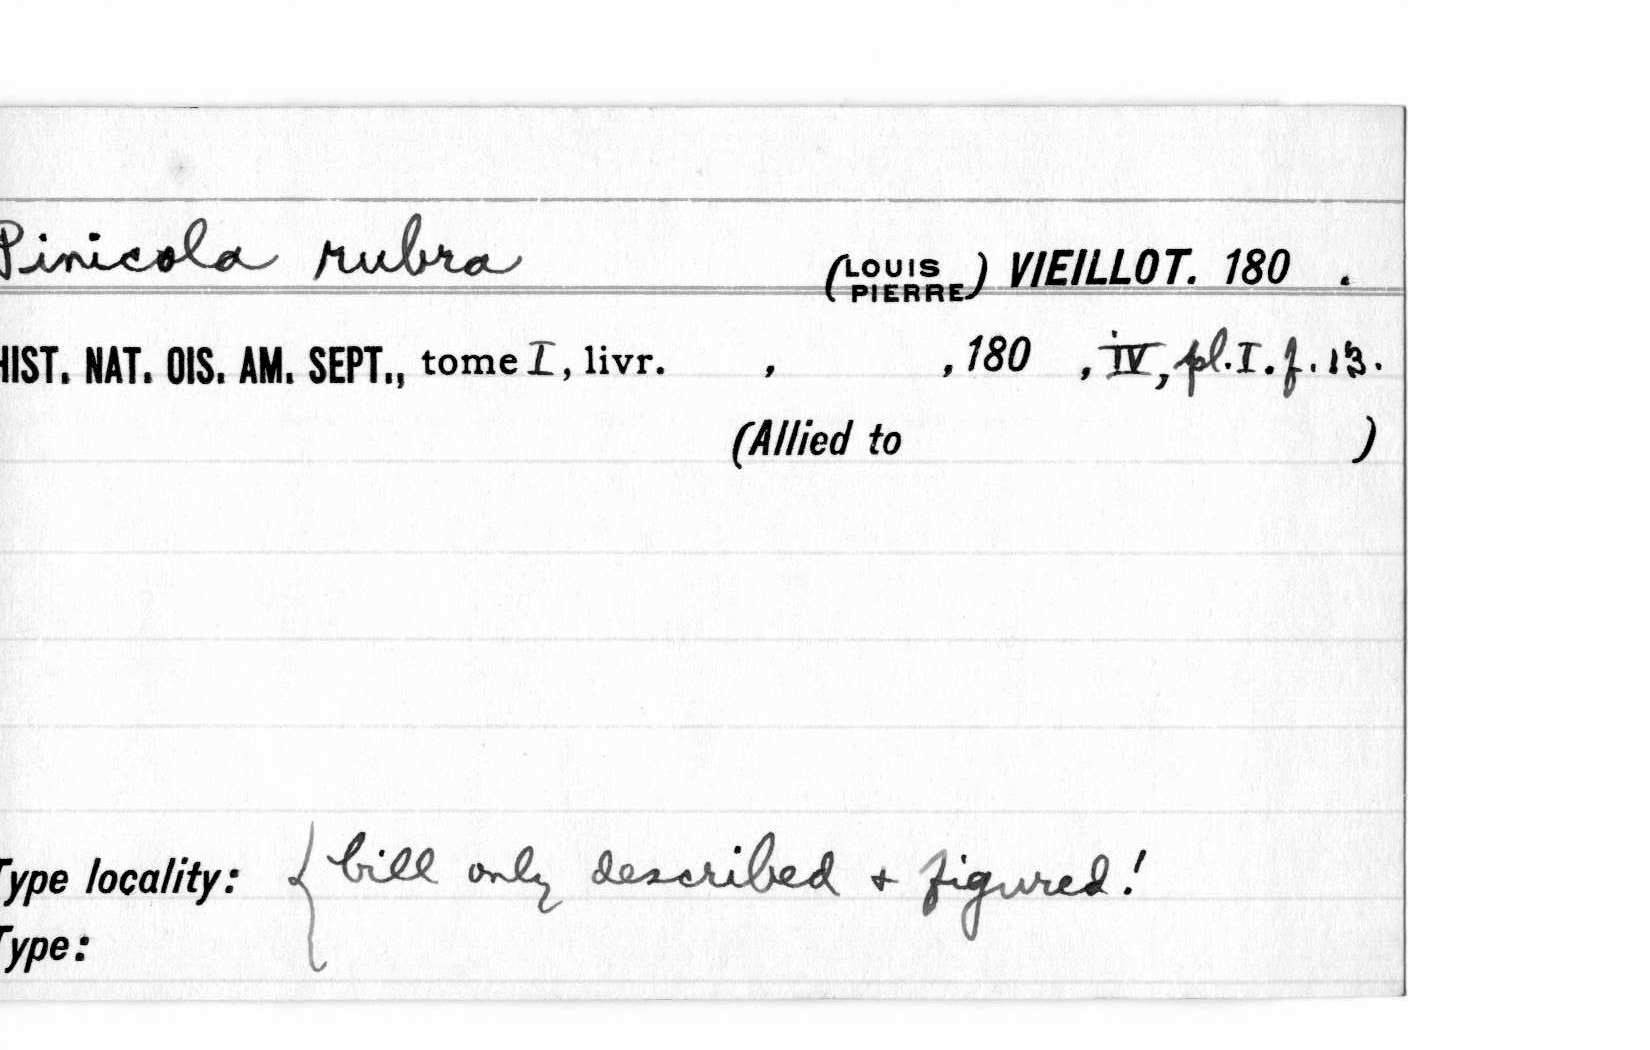 Pinicola rubra (LOUIS PIERRE) VIEILLOT. 180 .
HIST. NAT. OIS. AM. SEPT., tome I, livr. , , 180 , IV, pl. I. f. 13.
(Allied to )
Type locality: { bill only described + figured!
Type: